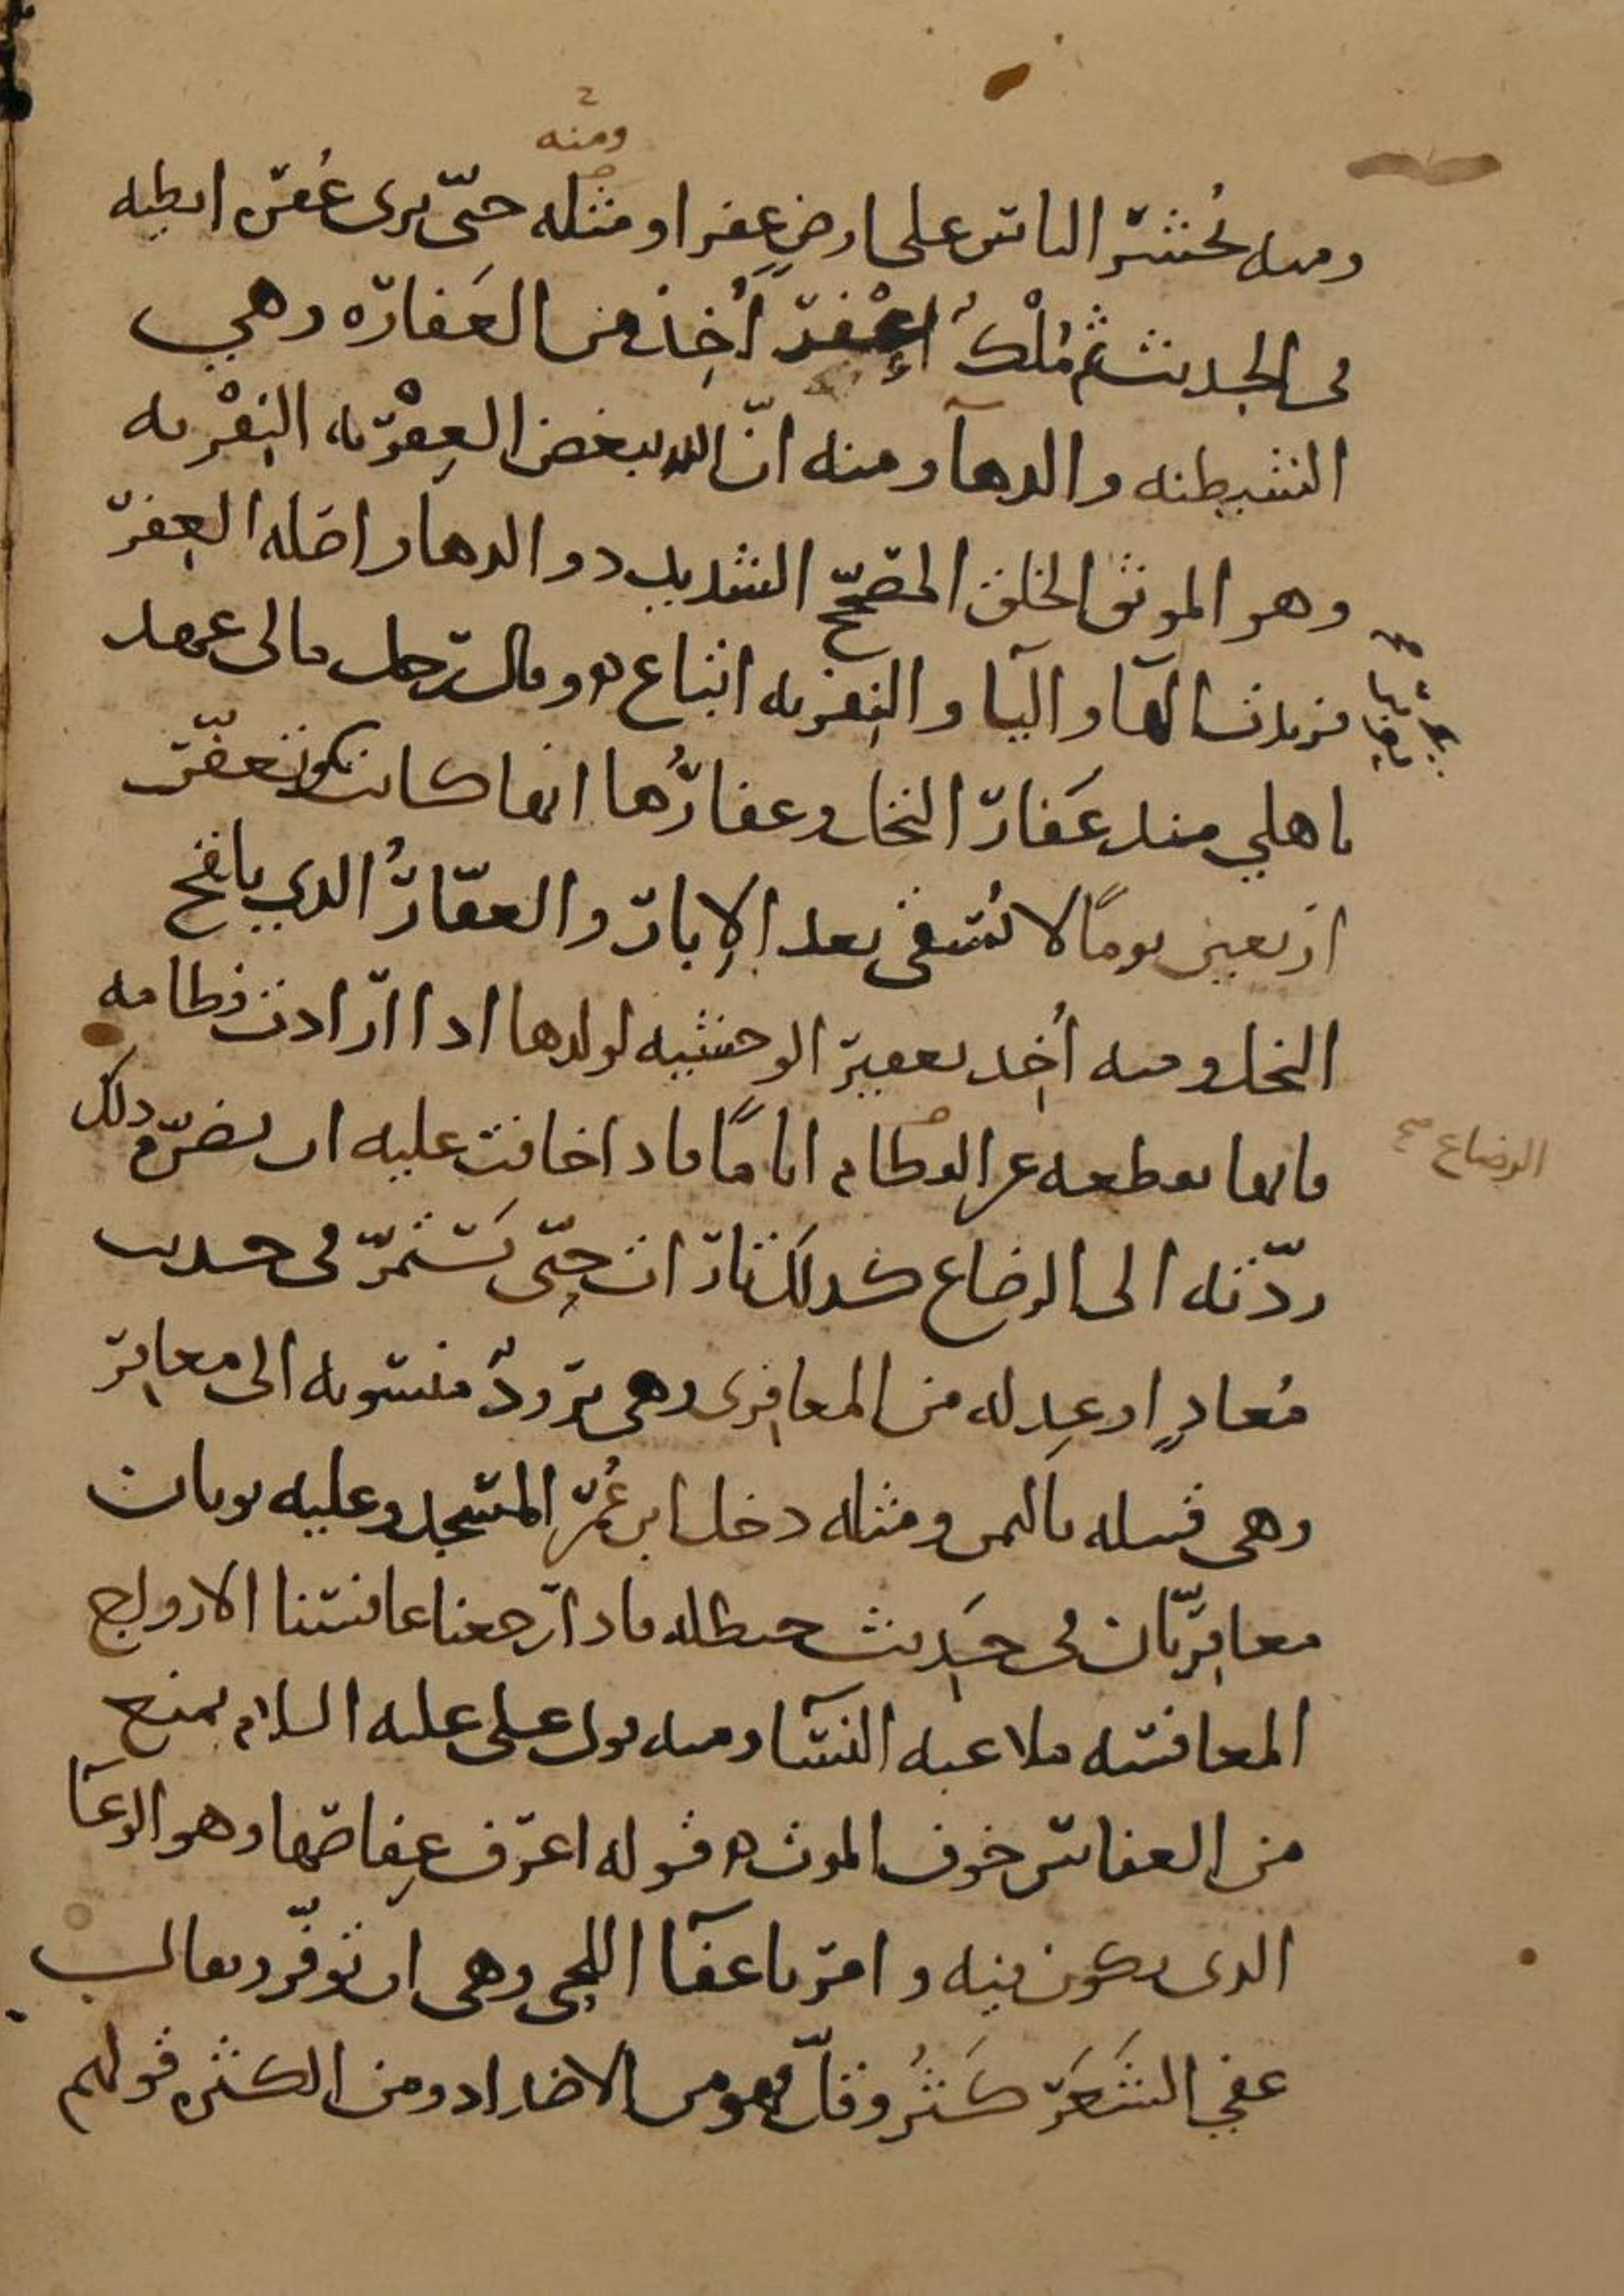 ومنه
ومنه يُحشر الناس على ارضٍ عفرا ومثله حتّى يرى عُفرة ابطيه
في الحديث ثم مُلْكُ اعْفَر أُخِذ من العَفارة وهي
الشيطنه والدهآ ومنه انّ الله يبغض العِفْريه النِفْريه
وهو الموثق الخلق المصحّح الشديد ذو الدها واصله العِفر
فزيدت الهآ واليآ والنِفريه اتباع ه وقال رجل مالي عهد
باهلي منذ عَفار النخل وعفارُها انها كانت تكون تعفّر
اربعين يومًا لا تُسقى بعد الإبار والعفّارُ الذي يلقح
النخل ومنه أُخِذ تعفير الوحشيه لولدها اذا ارادت فطامه
فانها تقطعه عن الفطام ايامًا فاذا خافت عليه ان يضرّه ذلك
الرضاع صح
ردّته الى الرضاع كذلك تارات حتّى يَستمرّ في حديث
مُعاذٍ او عِدله من المعافِرى وهى برودٌ منسوبه الى معافِر
وهى قبيله باليمن ومثله دخل ابن عُمر المسجد وعليه بردان
معافِريّان في حَديث حنظله فاذا رجعنا عافسنا الازواج
المعافسه ملاعبه النسآ ومنه قول على عليه السلام يمنع
من العفاس خوف الموت ه قوله اعرف عِفاصها وهو الوعآ
الذى يكون فيه وامر باعفآ اللحى وهى ان توفّر ويقال
عفي الشَعَر كَثُر وقلّ فهو من الاضداد ومن الكثره قولهم